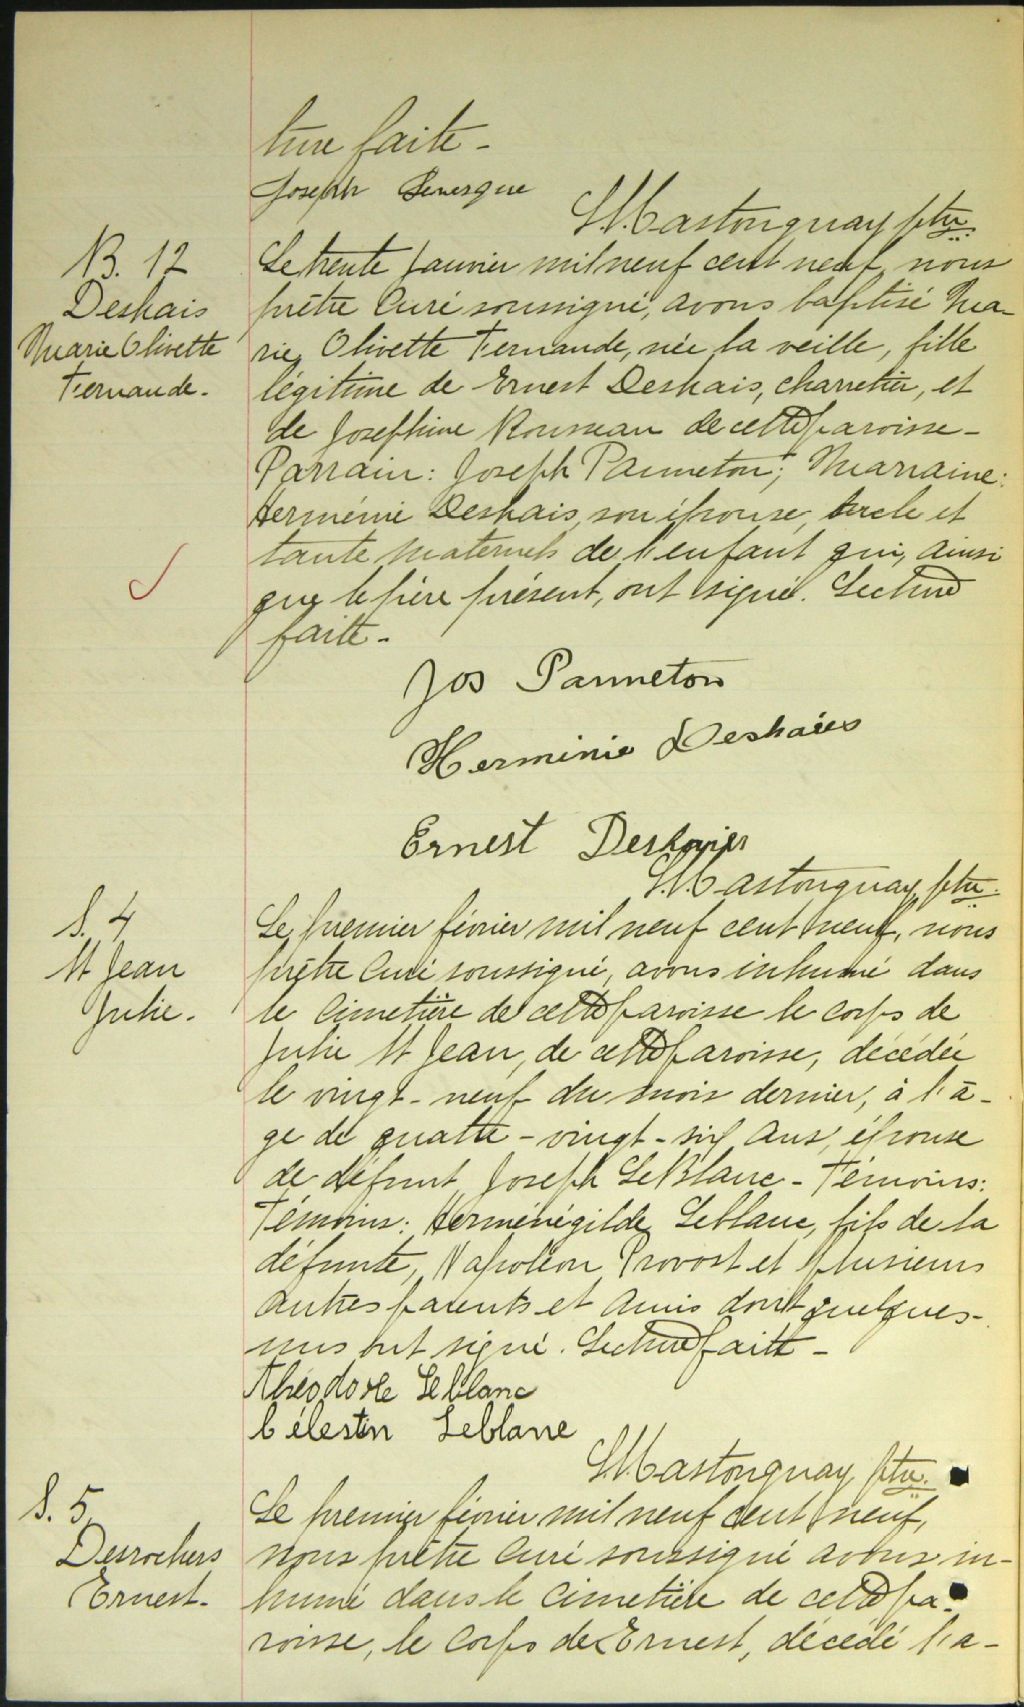 ture faite -
Joseph Levesque
Ptre
B. 12
Deshais
Marie Olivette
Fernande.
Le trente janvier mil neuf cent neuf, nous
prêtre Curé soussigné, avons baptisé Ma-
rie, Olivette Fernande, née la veille, fille
légitime de Ernest Deshais, charretier, et
de Josephine Rousseau de cette paroisse -
Parrain: Joseph Panneton; Marraine:
Herménie Deshais, son épouse, oncle et
tante maternels de l'enfant qui, ainsi
que le père présent, ont signé. Lecture
faite -
Jos Panneton
Herminie Deshaies
Ernest Deshaies
Ptre
S. 4
St Jean
Julie.
Le premier février mil neuf cent neuf, nous
prêtre Curé soussigné, avons inhumé dans
le Cimetière de cette paroisse le corps de
Julie St Jean, de cette paroisse, décédée
le vingt-neuf du mois dernier, à l'â-
ge de quatre-vingt-six ans, épouse
de défunt Joseph LeBlanc - Témoins:
Témoins: Herménégilde Leblanc, fils de la
défunte, Napoléon Provost et plusieurs
autres parents et amis dont quelques-
uns ont signé. Lecture faite -
Théodore Leblanc
Célestin Leblanc
Ptre
S. 5
Desrochers
Ernest.
Le premier février mil neuf cent neuf,
nous prêtre Curé soussigné avons in-
humé dans le Cimetière de cette pa-
roisse, le corps de Ernest, décédé l'a-